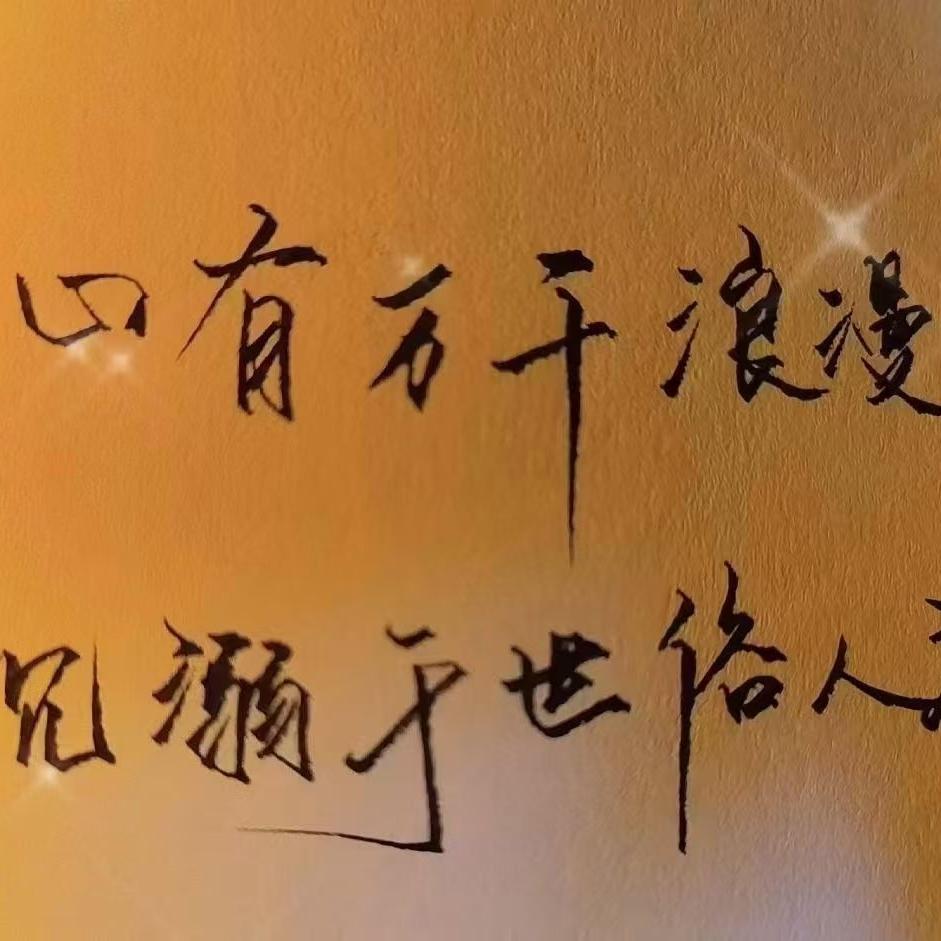 心有万千浪漫
沉溺于世俗人